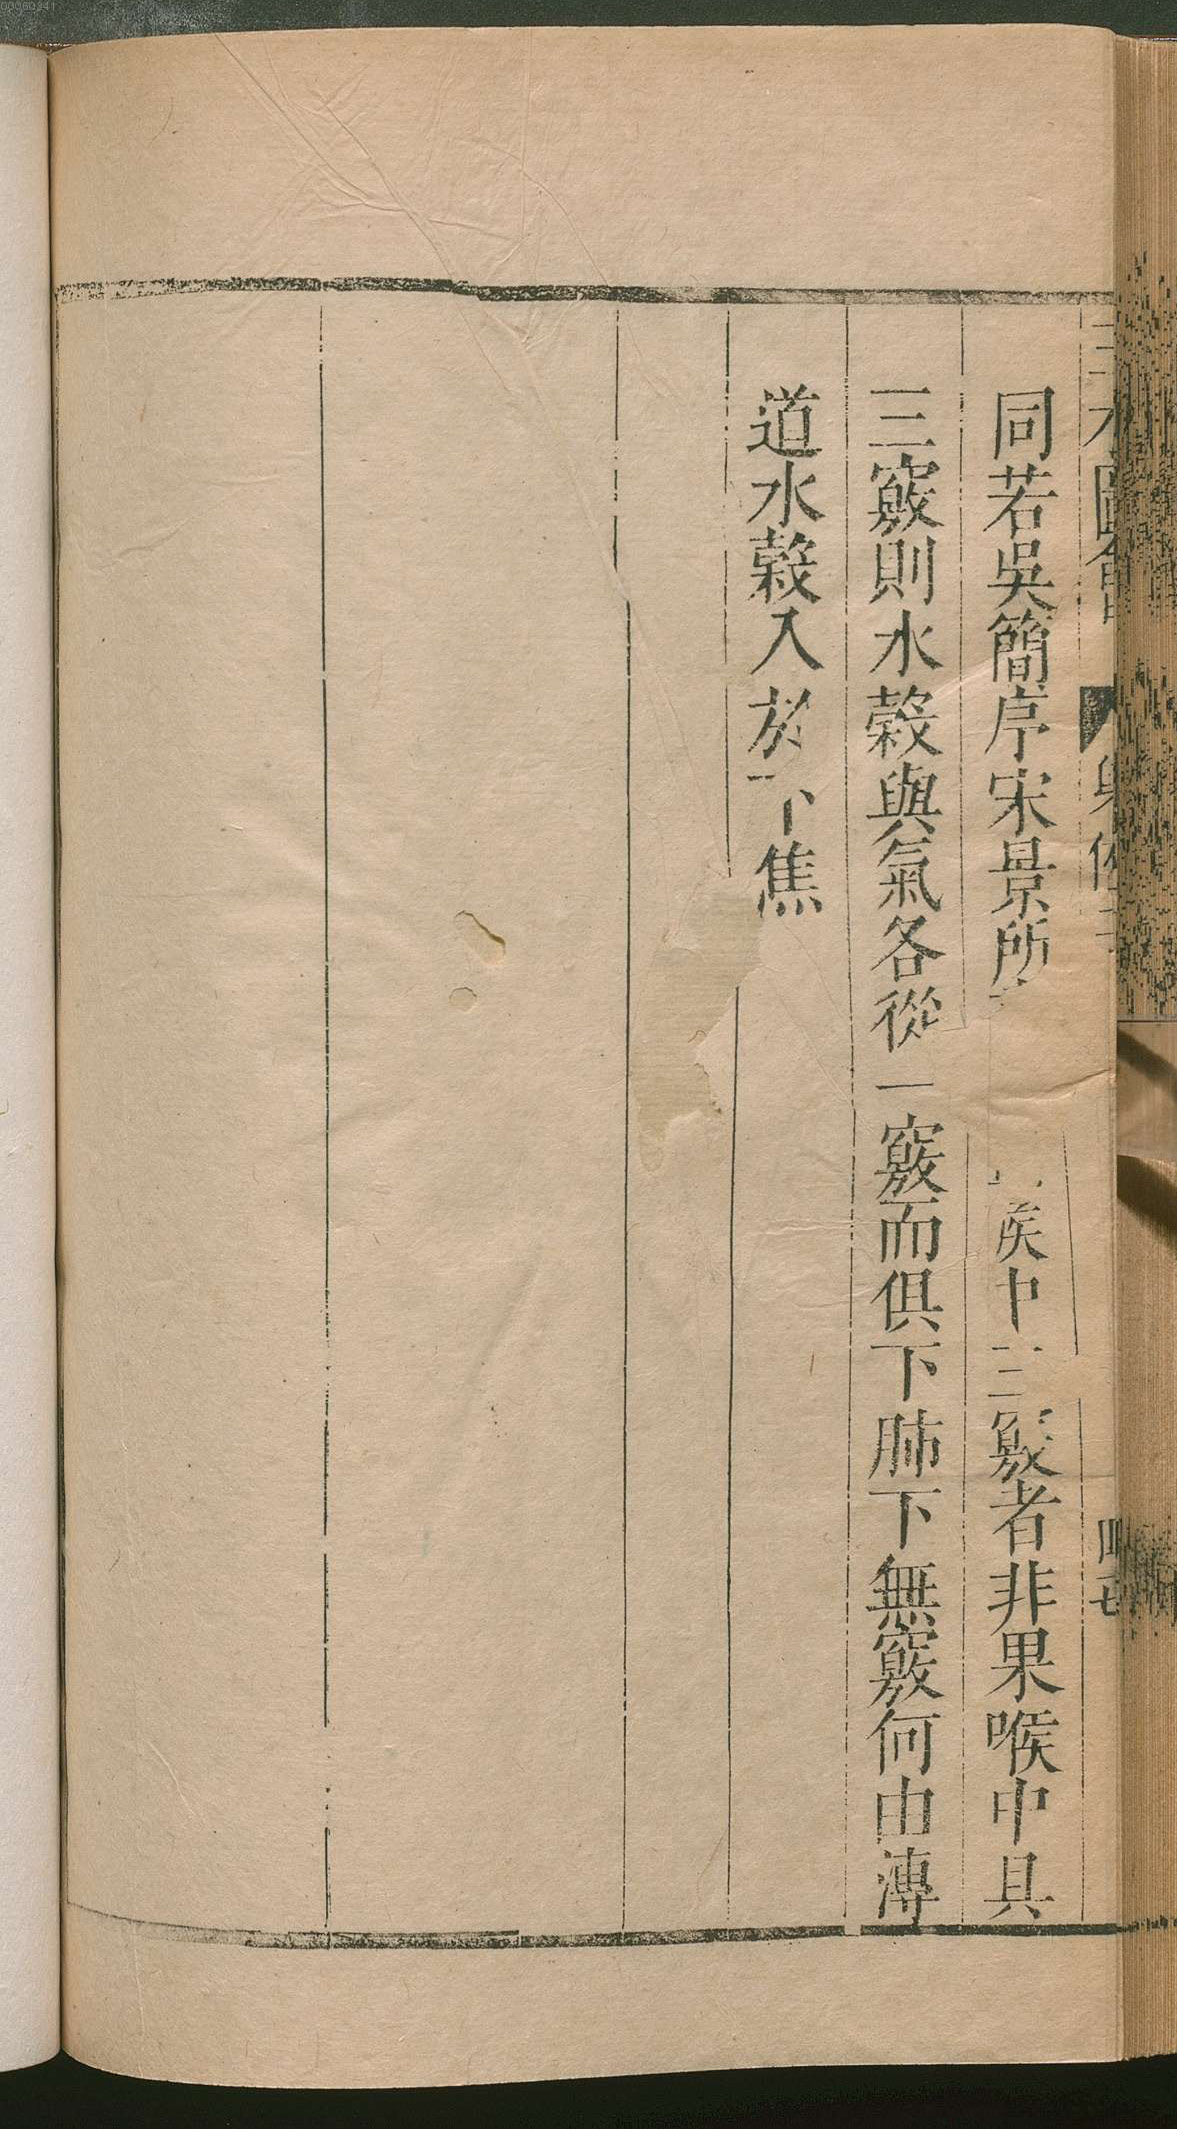 同若吳簡序宋景所喉中三竅者非果喉中具
三竅則水榖與氣各從一竅而俱下肺下無竅何由漙
道水榖入於下焦
四七
00060341